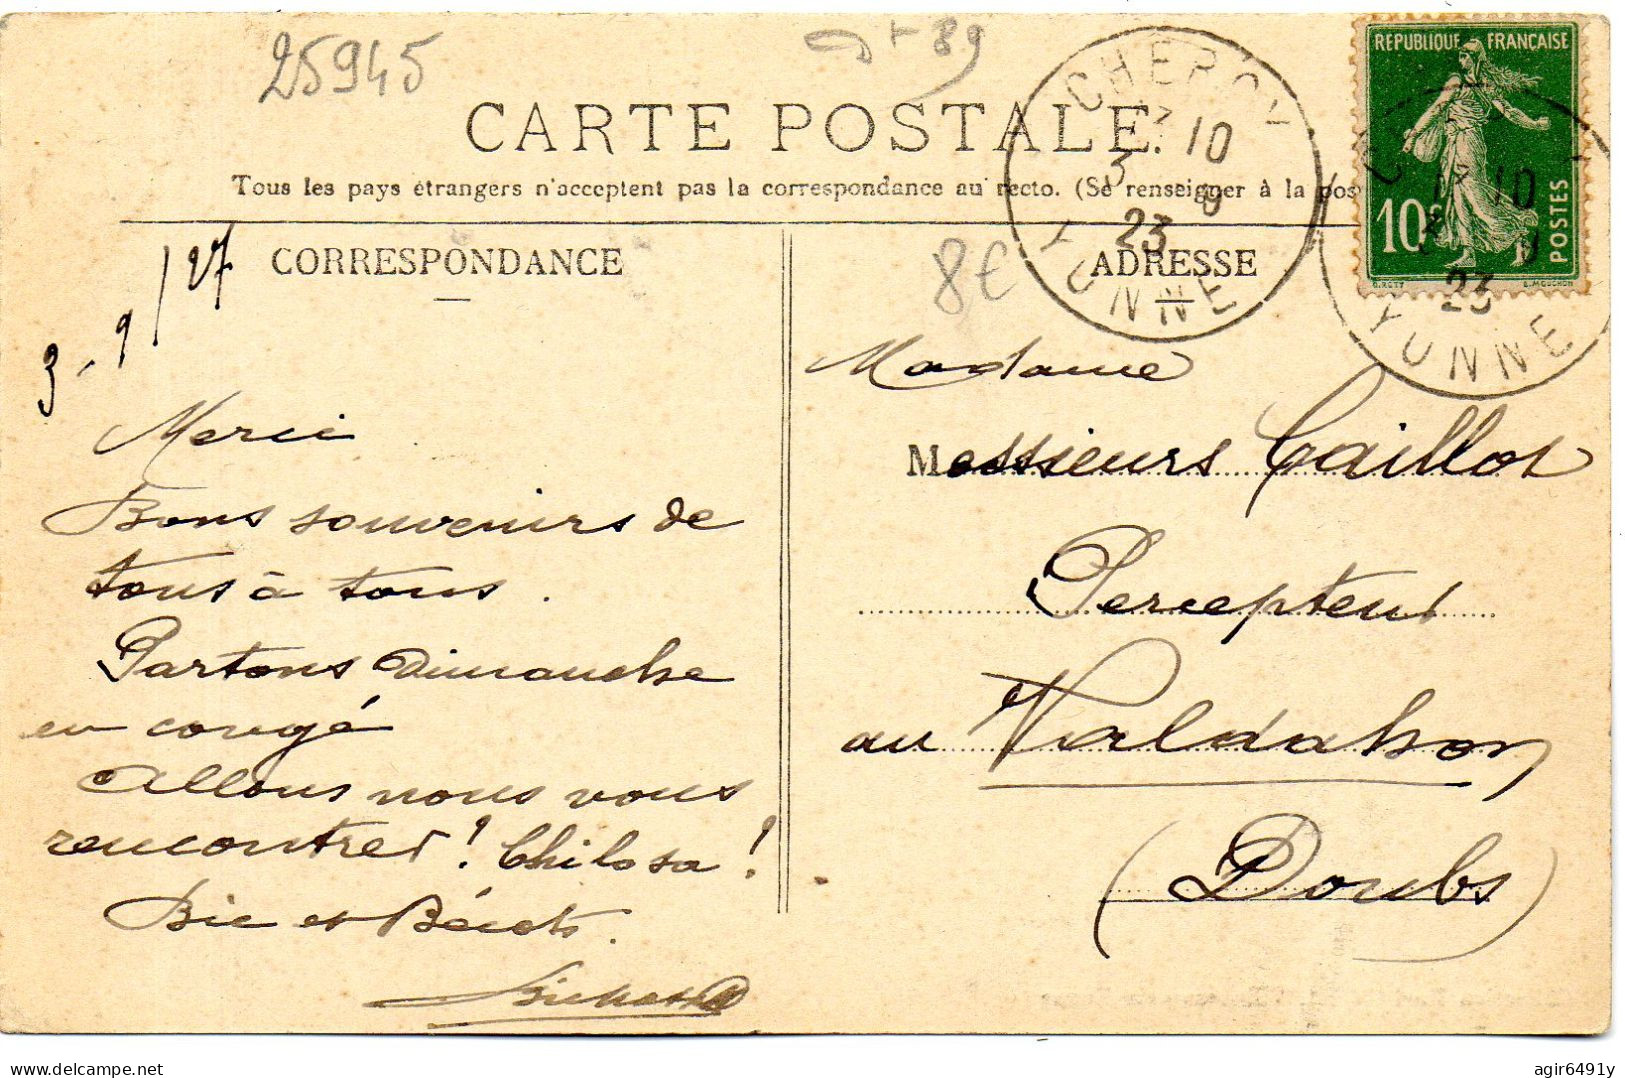 25945
89
CARTE POSTALE.
Tous les pays étrangers n'acceptent pas la correspondance au recto. (Se renseigner à la pos
RÉPUBLIQUE FRANÇAISE
10c
POSTES
O. ROTY
E. MOUCHON
CHÉROY
10
3 9
23
YONNE
10
9
23
YONNE
8€
CORRESPONDANCE
3-9/27
Merci
Bons souvenirs de
tous à tous.
Partons Dimanche
en congé
Allons nous vous
rencontrer !
Bic et Bécots.
ADRESSE
Madame
Messieurs Caillot
Percepteur
au Valdahon
(Doubs)
agir6491y